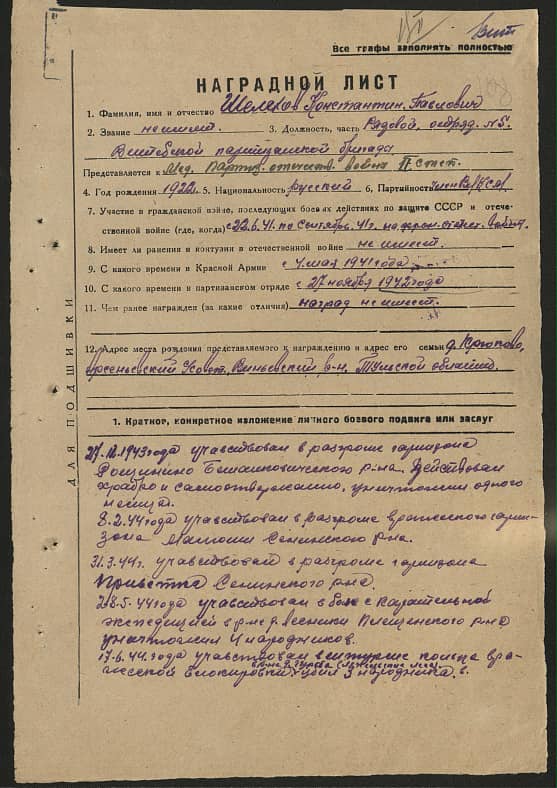 Все графы заполнять полностью
НАГРАДНОЙ ЛИСТ
1. Фамилия, имя и отчество Шелехов Константин Павлович
2. Звание не имеет. 3. Должность, часть Рядовой, отряд. №5.
Витебской партизанской бригады
Представляется к Мед. Партиз. отечеств. войны II степ.
4. Год рождения 1922. 5. Национальность русский 6. Партийность член
7. Участие в гражданской войне, последующих боевых действиях по защите СССР и отече-
ственной войне (где, когда) с 22.6.41. по сентябрь 41г.
8. Имеет ли ранения и контузии в отечественной войне не имеет.
9. С какого времени в Красной Армии с 4 мая 1941 года
10. С какого времени в партизанском отряде с 27 ноября 1942 года
11. Чем ранее награжден (за какие отличия) наград не имеет.
12. Адрес места рождения представляемого к награждению и адрес его семьи д.
р-н. Тульской области.
ДЛЯ ПОДШИВКИ
1. Краткое, конкретное изложение личного боевого подвига или заслуг
27.12.1943 года учавствовал в разгроме гарнизона
Бешанковического р-на. Действовал
храбро и самоотверженно, уничтожил одного
немца.
8.2.44 года учавствовал в разгроме вражеского гарни-
зона Сенинского р-на.
31.3.44г. учавствовал в разгроме гарнизона
Сенинского р-на.
28.5.44 года учавствовал в бою с карательной
экспедицией в р-не д. Плещинского р-на
уничтожил 4 народников.
17.6.44. года учавствовал в штурме пояса вра-
жеской блокировки убил 3 народника.